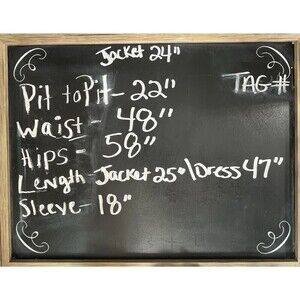 Jacket 24"
Pit to Pit - 22"
TAG #
Waist - 48"
Hips - 58"
Length - Jacket 25" \ Dress 47"
Sleeve - 18"